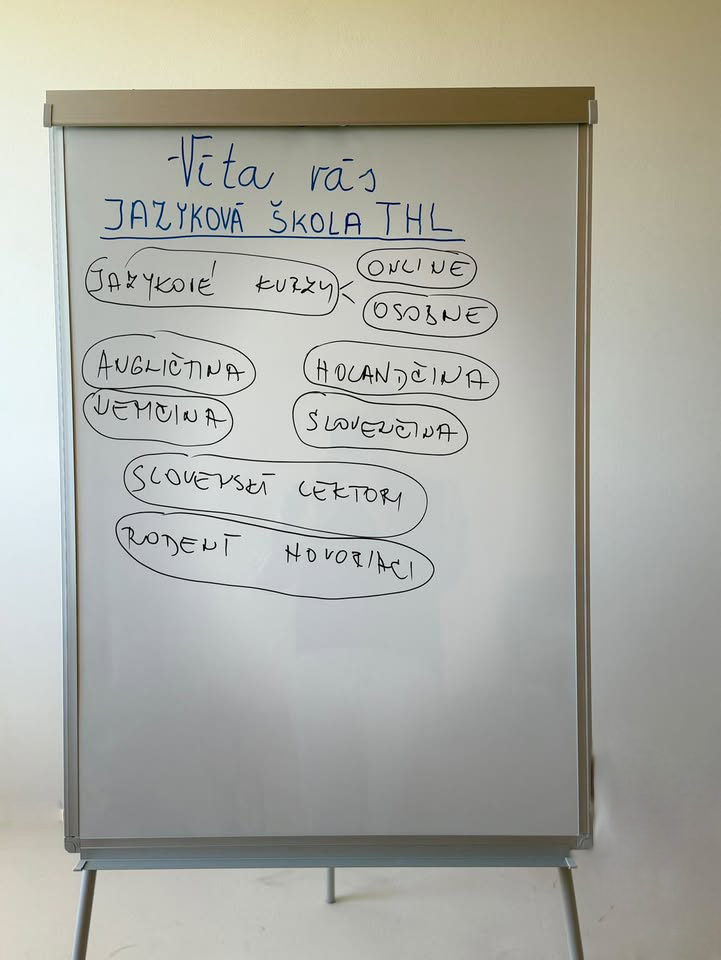 Víta vás
JAZYKOVÁ ŠKOLA THL
JAZYKOVÉ KURZY
ONLINE
OSOBNE
ANGLIČTINA
HOLANDČINA
NEMČINA
SLOVENČINA
SLOVENSKÍ LEKTORI
RODENÍ HOVORIACI